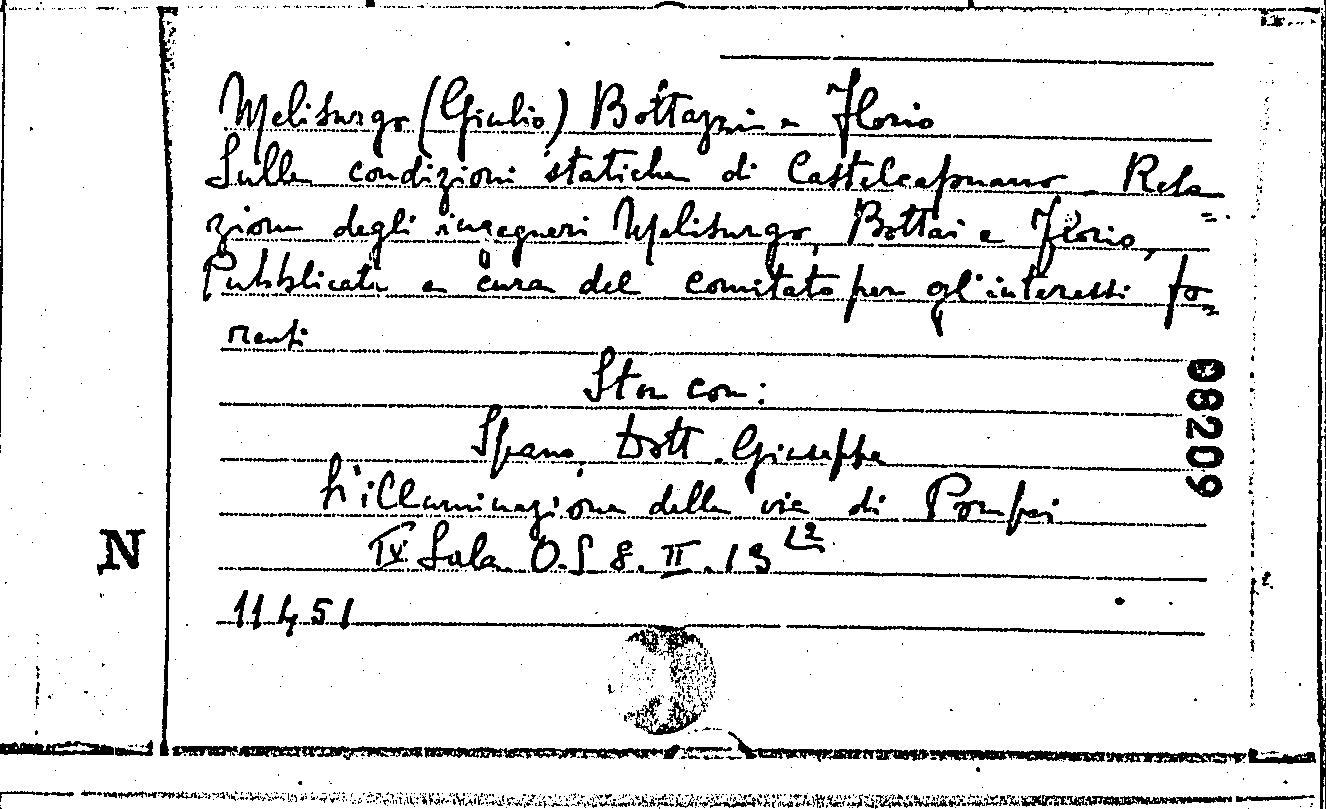 Melisurgo (Giulio) Bottazzi e Florio
Sulle condizioni statiche di Castelcapuano. Rela=
zione degli ingegneri Melisurgo, Bottai e Florio,
Pubblicata a cura del comitato per gl'interessi fo=
rensi
Sta con:
Spano, Dott. Giuseppe
L'illuminazione delle vie di Pompei
IX Sala O.S 8. II. 13 12
11451
08209
N